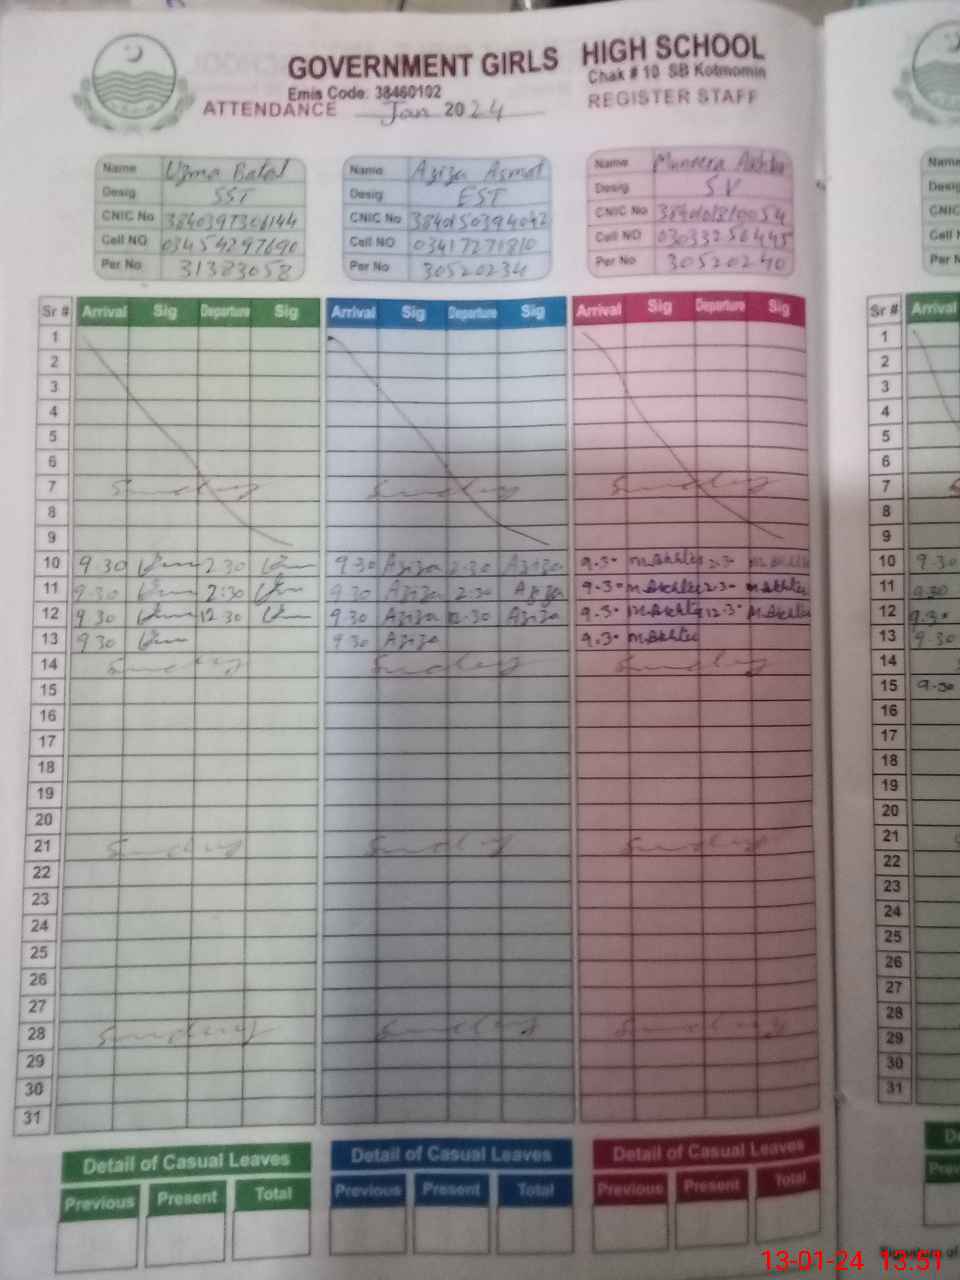 GOVERNMENT GIRLS HIGH SCHOOL
Emis Code: 38460102 Chak # 10 SB Kotmomin
ATTENDANCE Jan 2024 REGISTER STAFF
Name Uzma Batol Name Aziza Asmat Name Muneera Akhter
Desig SST Desig EST Desig SV
CNIC No CNIC No CNIC No
Cell NO 03454297690 Cell NO 03417271810 Cell NO 03033256445
Per No 31383058 Per No 30520234 Per No 30520240
Sr # Arrival Sig Departure Sig Arrival Sig Departure Sig Arrival Sig Departure Sig Sr # Arrival
1 1
2 2
3 3
4 4
5 5
6 6
7 Sunday Sunday Sunday 7
8 8
9 9
10 9.30 2.30 9.30 Aziza 2.30 Aziza 9.30 M.Akhter 2.30 M.Akhter 10 9.30
11 9.30 2:30 9.30 Aziza 2.30 Aziza 9.30 M.Akhter 2.30 M.Akhter 11 9.30
12 9.30 12.30 9.30 Aziza 12.30 Aziza 9.30 M.Akhter 12.30 M.Akhter 12 9.30
13 9.30 9.30 Aziza 9.30 M.Akhter 13 9.30
14 Sunday Sunday Sunday 14
15 15 9.30
16 16
17 17
18 18
19 19
20 20
21 Sunday Sunday Sunday 21
22 22
23 23
24 24
25 25
26 26
27 27
28 Sunday Sunday Sunday 28
29 29
30 30
31 31
Detail of Casual Leaves Detail of Casual Leaves Detail of Casual Leaves
Previous Present Total Previous Present Total Previous Present Total
Signature of
13-01-24 13:51